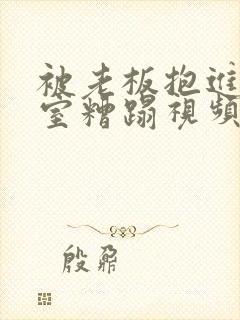 被老板抱进
室糟蹋視頻
殷鼐